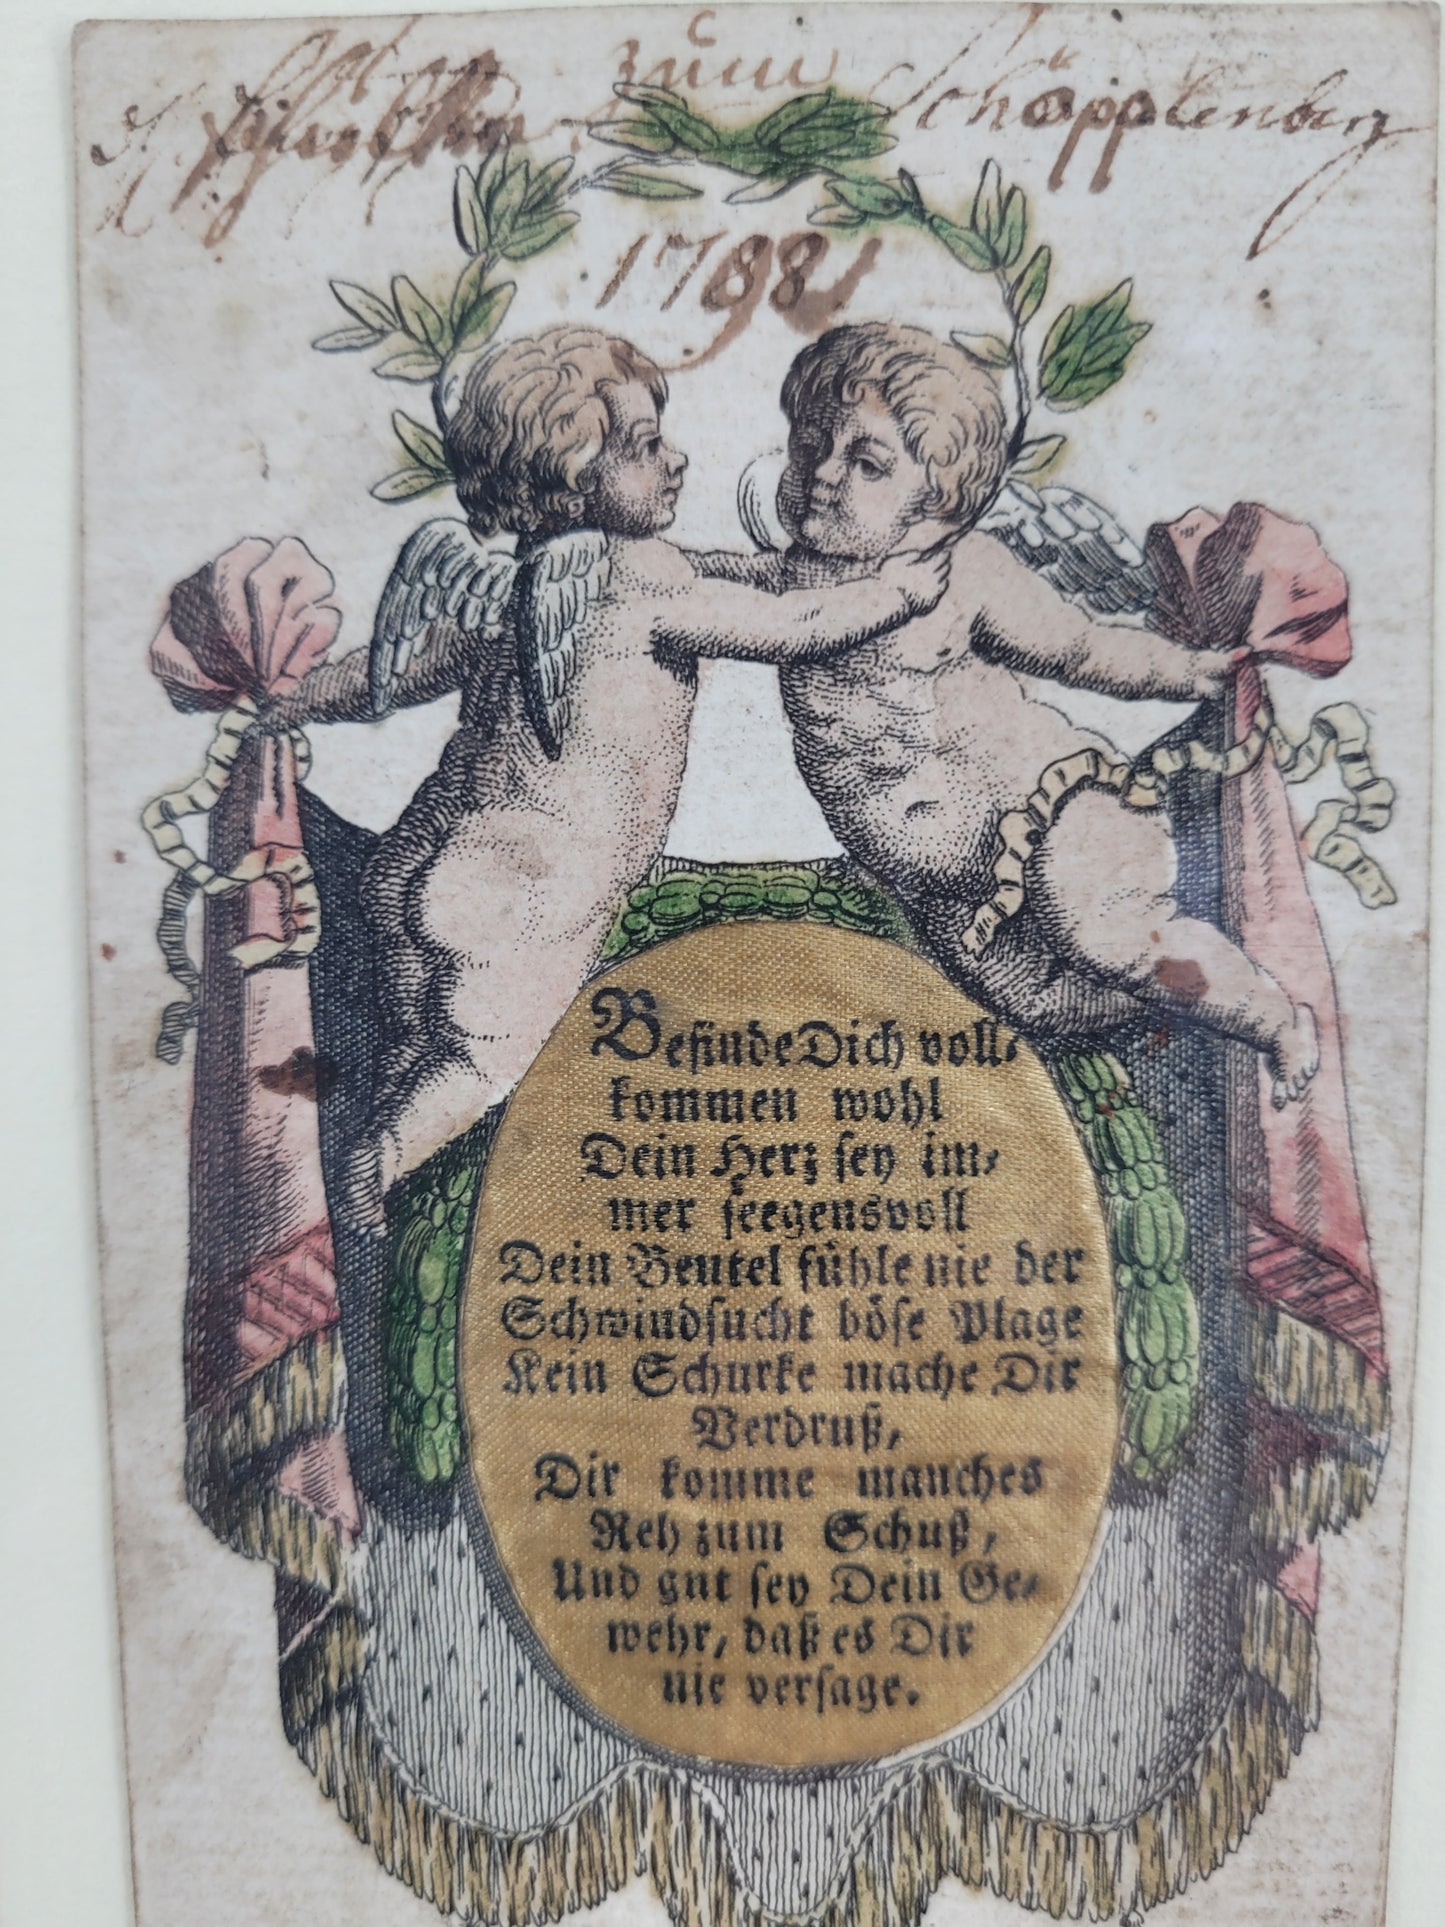 zum Schäpplenberg
1788
Befinde Dich voll⸗
kommen wohl
Dein Herz sey im⸗
mer seegensvoll
Dein Beutel fühle nie der
Schwindsucht böse Plage
Kein Schurke mache Dir
Verdruß,
Dir komme manches
Reh zum Schuß,
Und gut sey Dein Ge⸗
wehr, daß es Dir
nie versage.